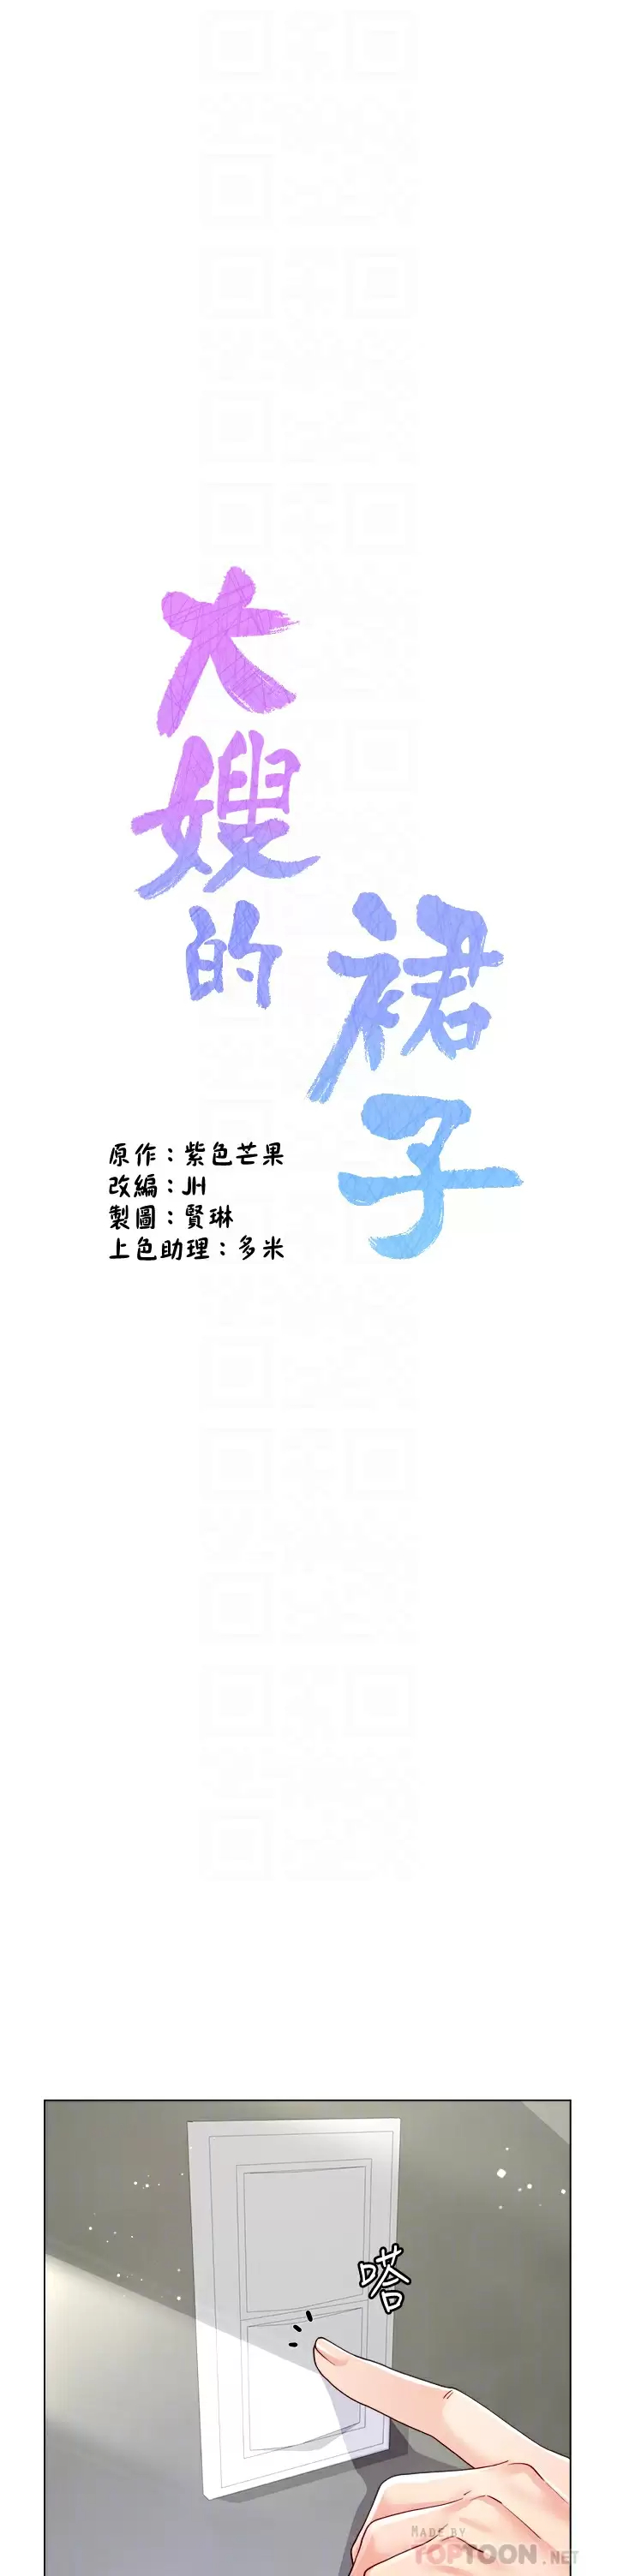 大嫂的
裙子
原作：紫色芒果
改編：JH
製圖：賢琳
上色助理：多米
嗒
MADE BY
TOPTOON.NET